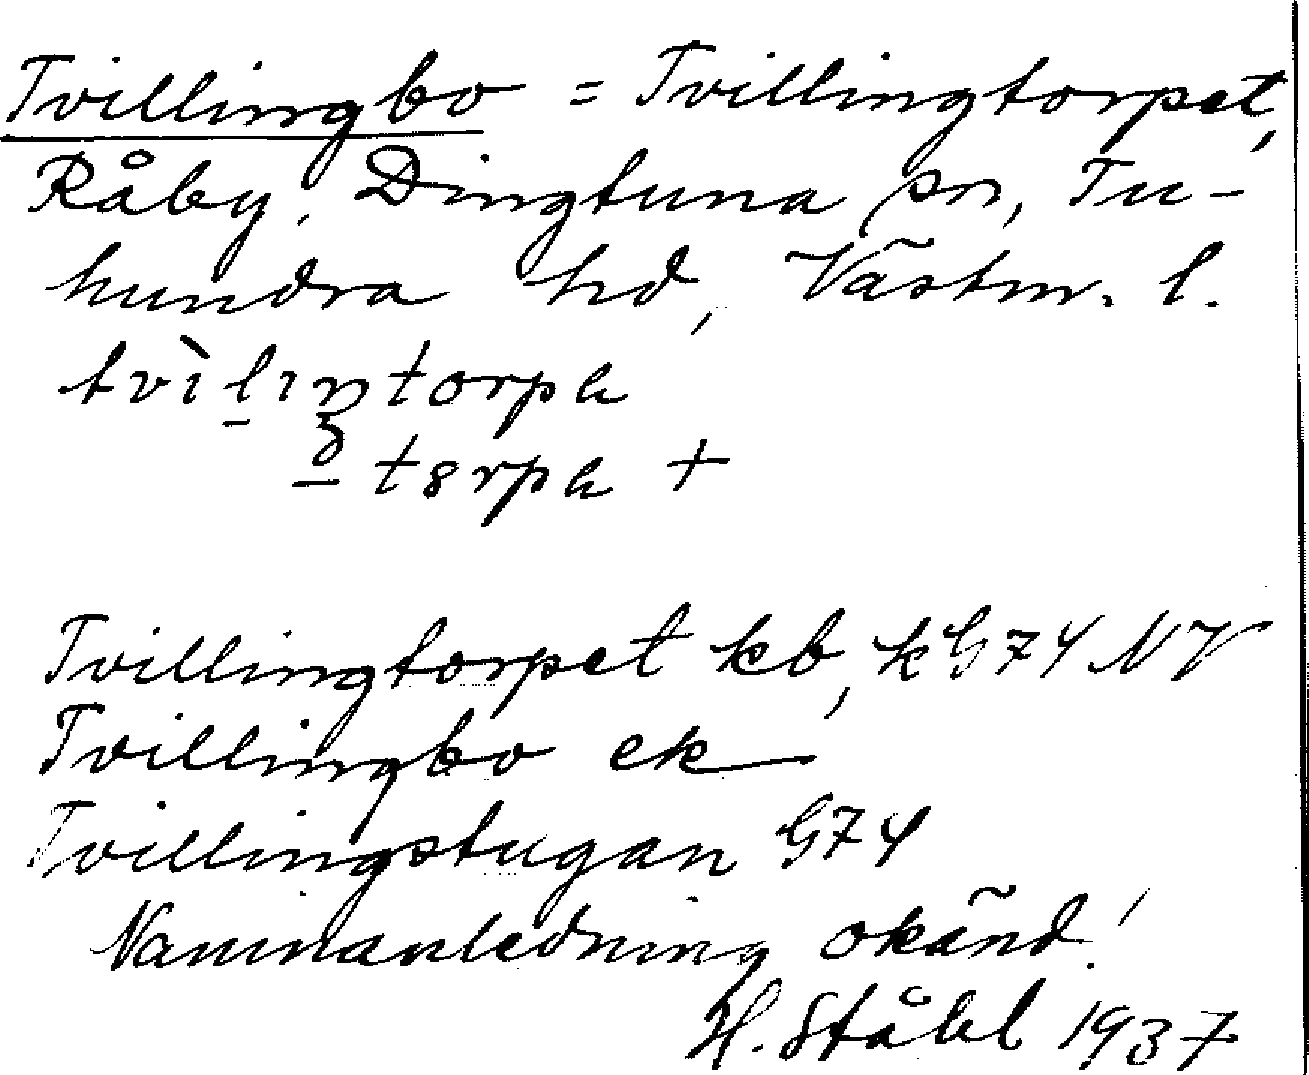 Tvillingbo = Tvillingtorpet,
Råby, Dingtuna sn, Tu-
hundra hd, Västm. l.
tvìlıŋtorpa
– torpa +
Tvillingtorpet kb, kG74 NV
Tvillingbo ek
Tvillingstugan G74
Namnanledning okänd!
H. Ståhl 1937